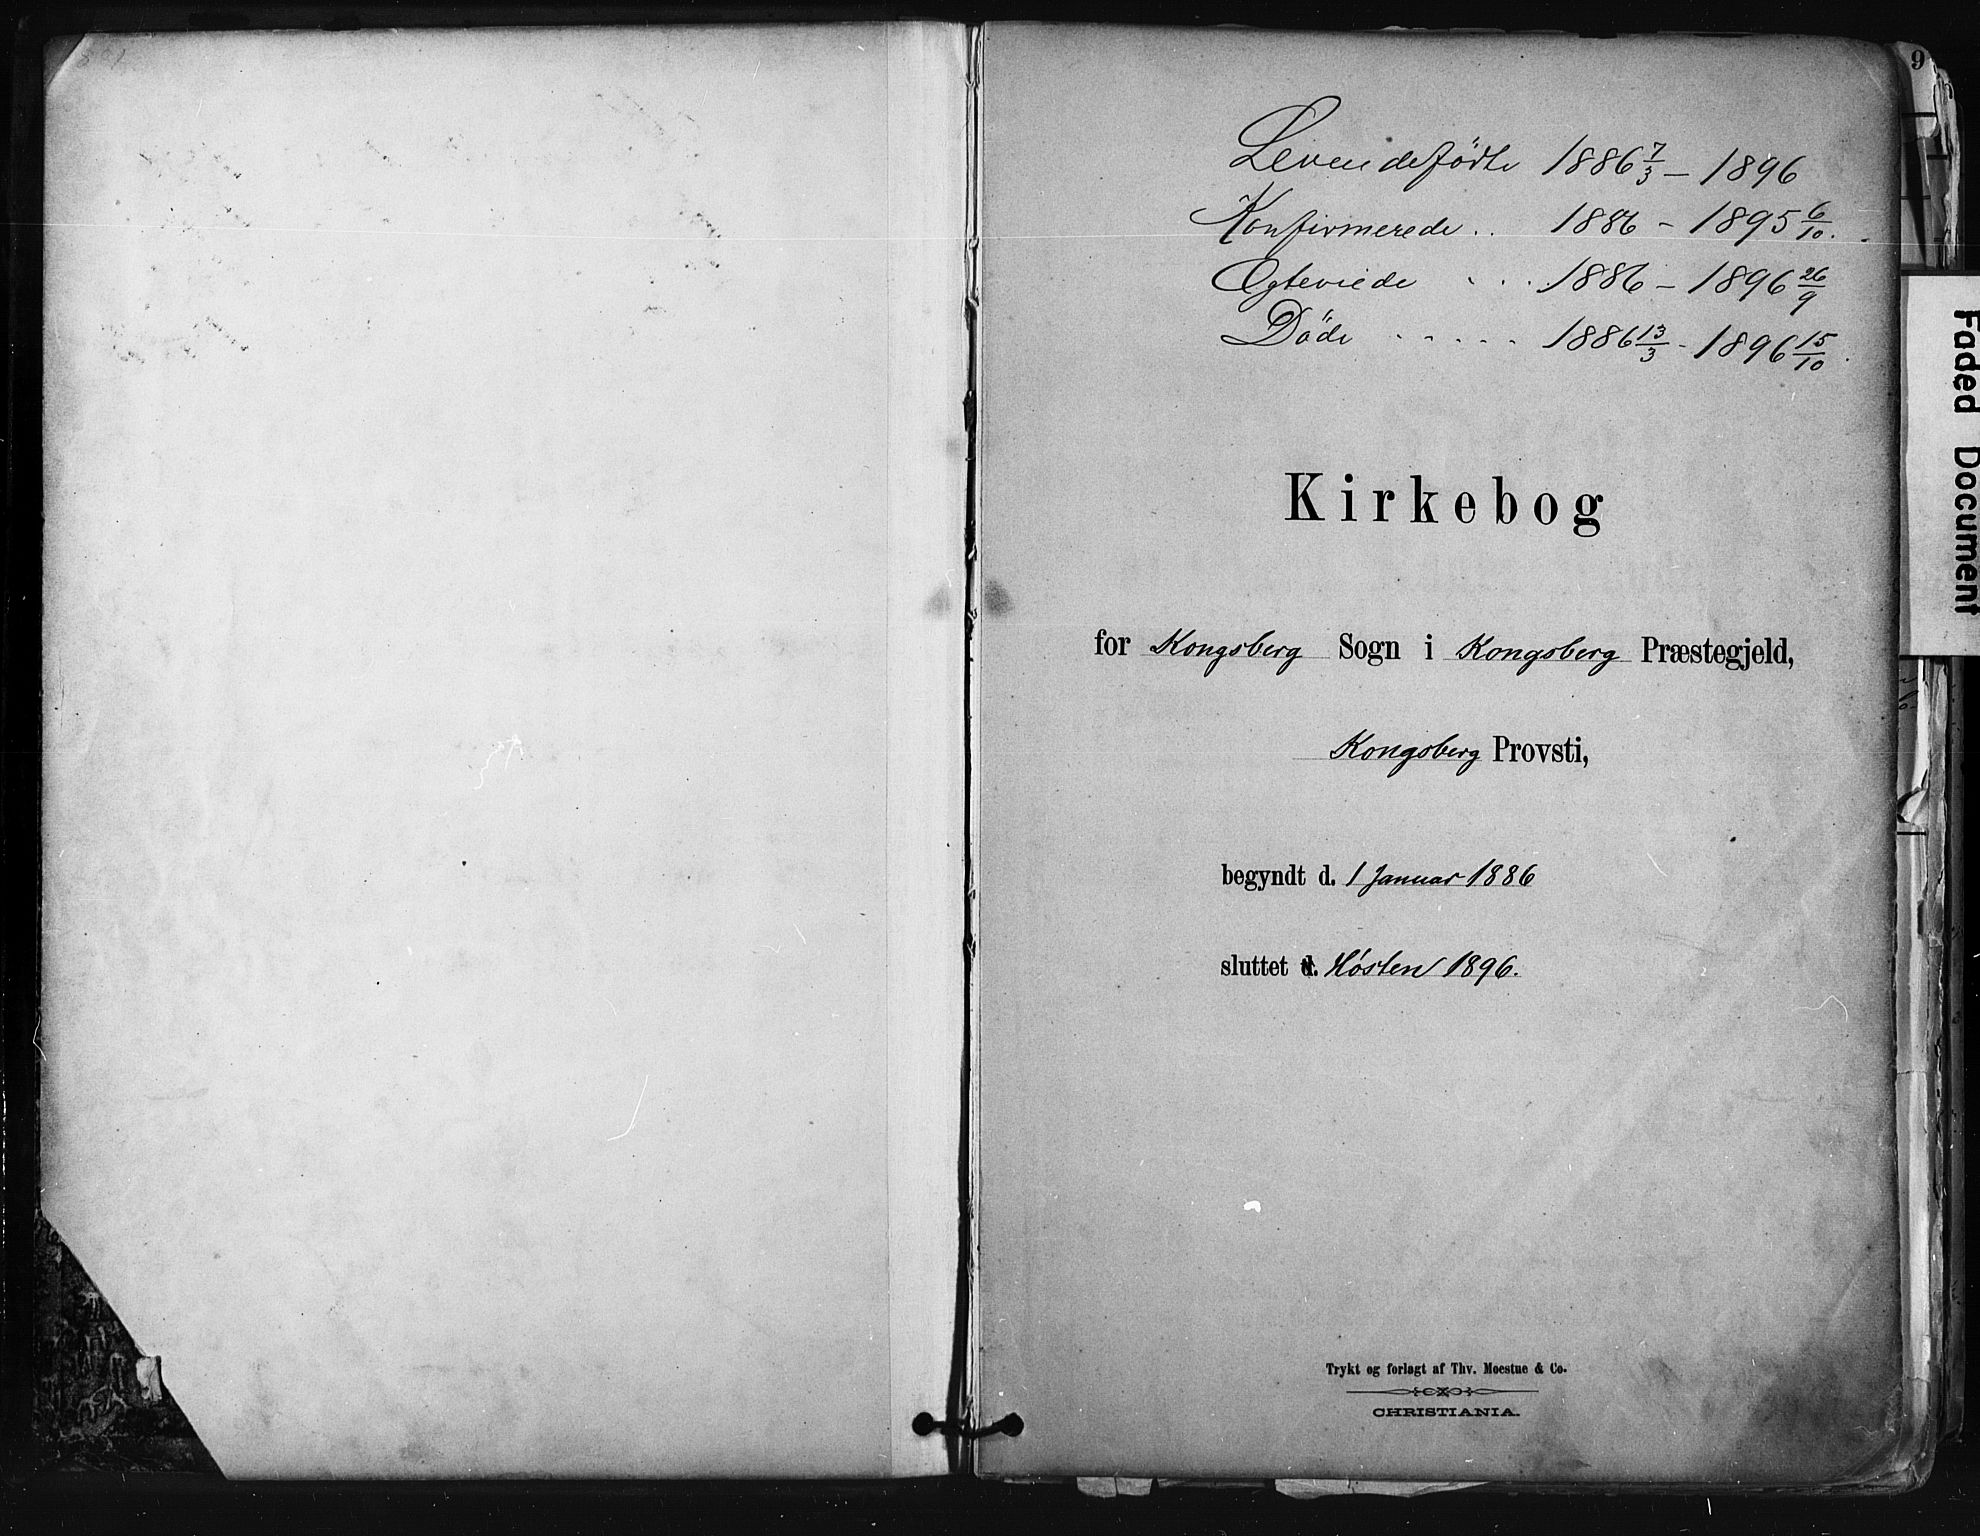 Levendefødte 1886 7/3 - 1896
Konfirmerede .. 1886 - 1895 6/10.
Egteviede . . . 1886 - 1896 26/9
Døde . . . . . 1886 13/3 - 1896 15/10.
Kirkebog
for Kongsberg Sogn i Kongsberg Præstegjeld,
Kongsberg Provsti,
begyndt d. 1 Januar 1886
sluttet d. Høsten 1896.
Trykt og forlagt af Thv. Moestue & Co.
CHRISTIANIA.
9
Faded Document